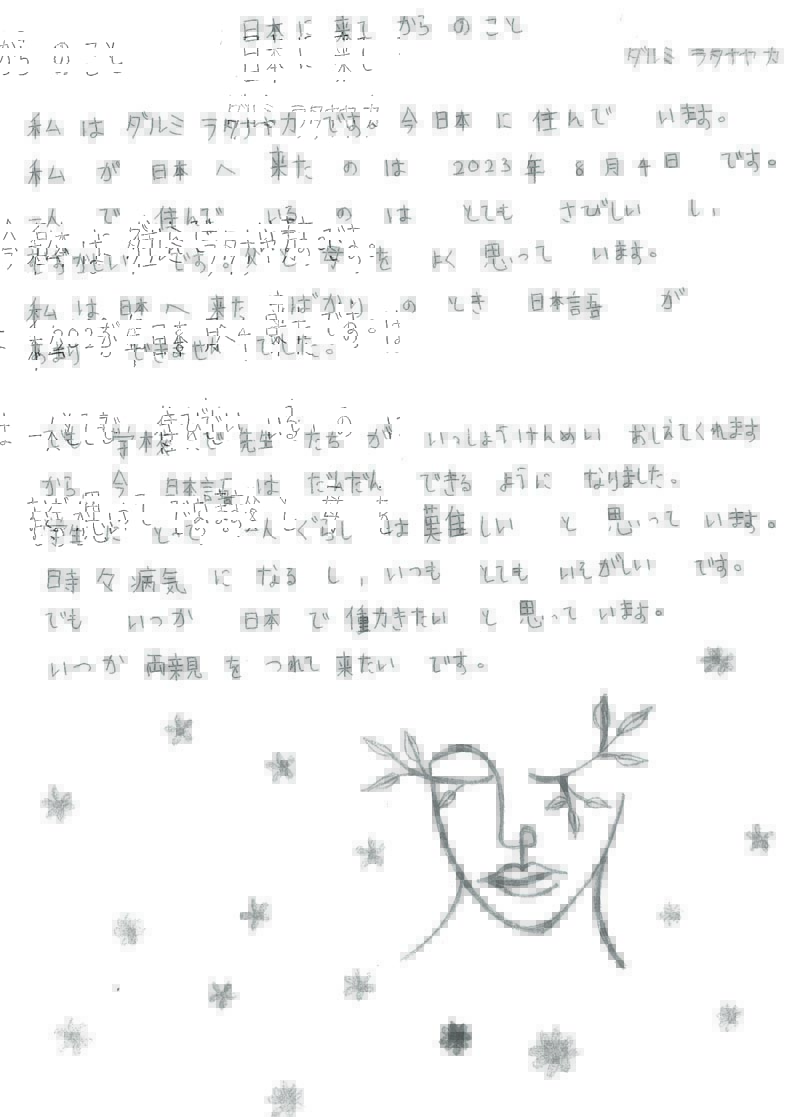 日本に来てからのこと
ダルミ ラタナヤカ
私はダルミ ラタナヤカです。今日本に住んでいます。
私が日本へ来たのは2023年8月4日です。
一人で住んでいるのはとてもさびしいし、
むずかしいです。父と母をよく思っています。
私は日本へ来たばかりのとき日本語が
あまりできませんでした。
でも学校で先生たちがいっしょうけんめいおしえてくれます
から今日本語はだんだんできるようになりました。
学生にとって一人ぐらしは難しいと思っています。
時々病気になるし、いつもとてもいそがしいです。
でもいつか日本で働きたいと思っています。
いつか両親をつれて来たいです。